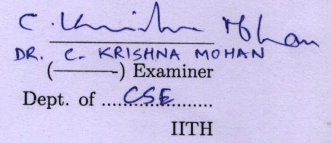 C. Krishna Mohan
DR. C. KRISHNA MOHAN
(———-) Examiner
Dept. of .....CSE.....................
IITH